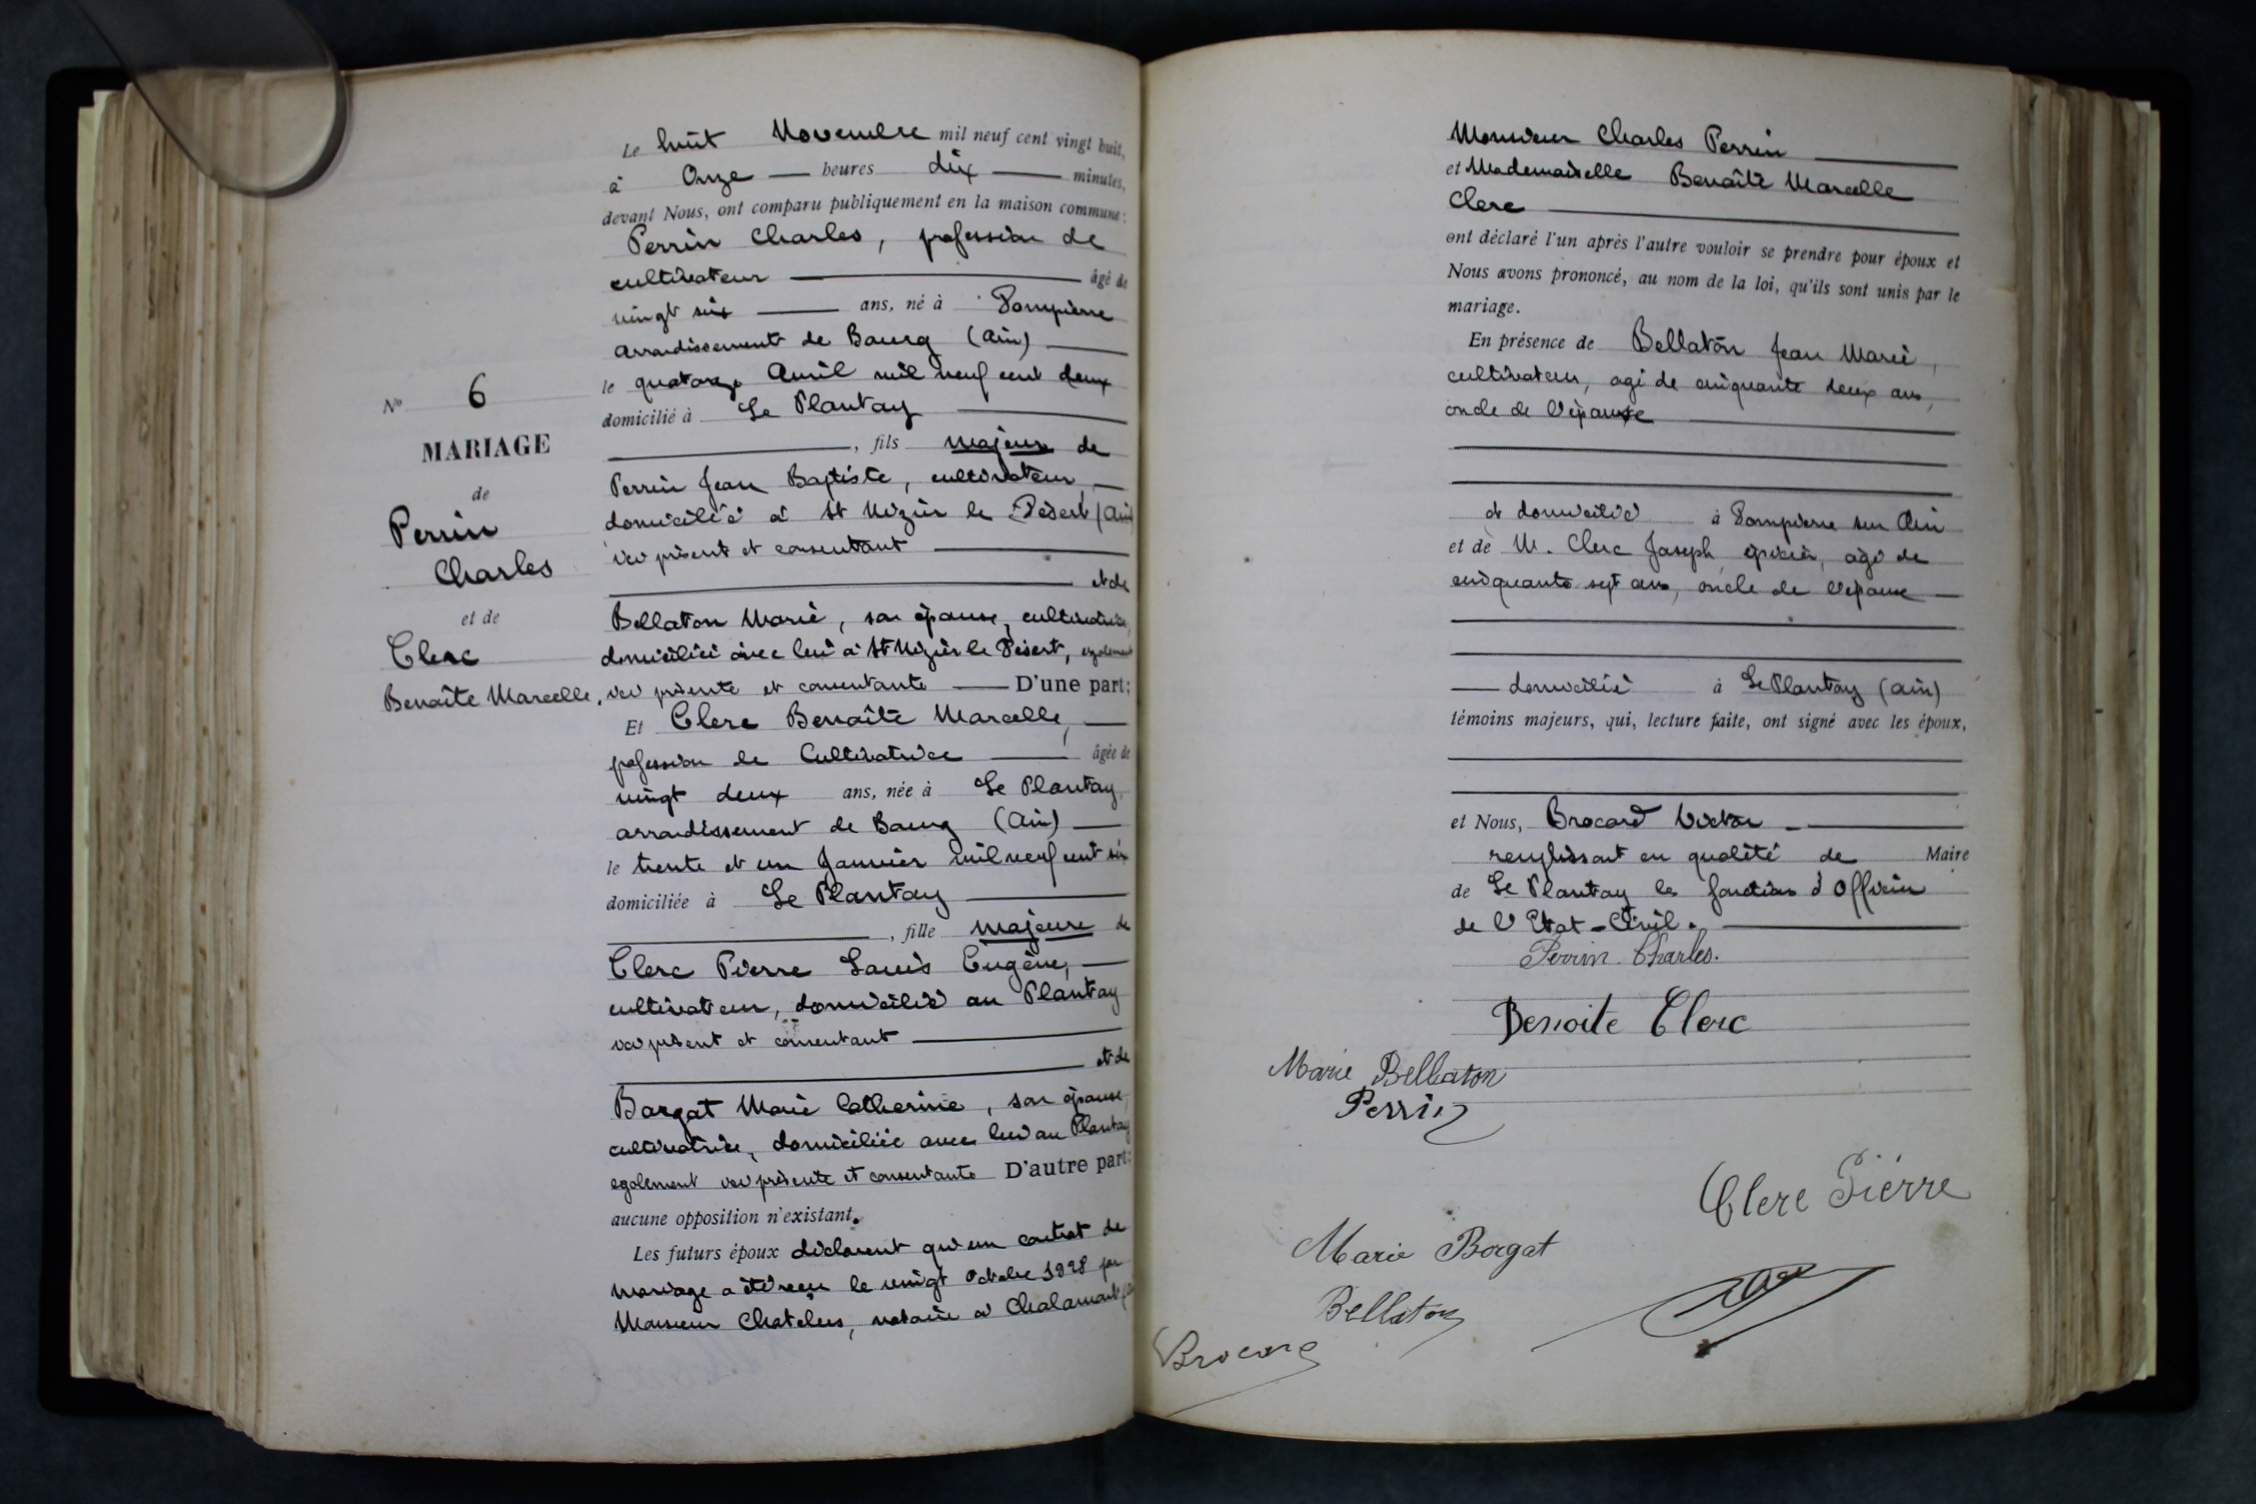 Le huit Novembre mil neuf cent vingt huit,
à Onze heures dix minutes,
devant Nous, ont comparu publiquement en la maison commune:
Perrin Charles, profession de
cultivateur âgé de
vingt six ans, né à Dompierre
arrondissement de Bourg (Ain)
le quatorze Avril mil neuf cent deux
domicilié à Le Plantay
, fils majeur de
Perrin Jean Baptiste, cultivateur,
domicilié à St Nizier le Désert (Ain)
ici présent et consentant
et de
Bellaton Marie, son épouse, cultivatrice,
domiciliée avec lui à St Nizier le Désert, également
ici présente et consentante D'une part;
Et Clerc Benoîte Marcelle,
profession de Cultivatrice âgée de
vingt deux ans, née à Le Plantay,
arrondissement de Bourg (Ain)
le trente et un Janvier mil neuf cent six
domiciliée à Le Plantay
, fille majeure de
Clerc Pierre Louis Eugène,
cultivateur, domicilié au Plantay
ici présent et consentant
et de
Borgat Marie Catherine, son épouse,
cultivatrice, domiciliée avec lui au Plantay
egalement ici présente et consentante D'autre part:
aucune opposition n'existant.
Les futurs époux déclarent qu'un contrat de
mariage a été reçu le vingt Octobre 1928 par
Monsieur Chatelus, notaire à Chalamont
No 6
MARIAGE
de
Perrin
Charles
et de
Clerc
Benoîte Marcelle.
Monsieur Charles Perrin
et Mademoiselle Benoîte Marcelle
Clerc
ont déclaré l'un après l'autre vouloir se prendre pour époux et
Nous avons prononcé, au nom de la loi, qu'ils sont unis par le
mariage.
En présence de Bellaton Jean Marie,
cultivateur, agé de cinquante deux ans,
oncle de l'épouse
et domicilié à Dompierre sur Ain
et de M. Clerc Joseph épicier, agé de
cinquante sept ans, oncle de l'épouse
domicilié à Le Plantay (Ain)
témoins majeurs, qui, lecture faite, ont signé avec les époux,
et Nous, Brocard Victor
remplissant en qualité de Maire
de Le Plantay les fonctions d'Officier
de l'Etat-Civil.
Perrin Charles.
Benoite Clerc
Marie Bellaton
Perrin
Clerc Pierre
Marie Borgat
Bellaton
Brocard